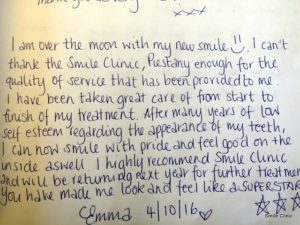 xxx
I am over the moon with my new smile ☺. I can't
thank the Smile Clinic, Piestany enough for the
quality of service that has been provided to me.
I have been taken great care of from start to
finish of my treatment. After many years of low
self esteem regarding the appearance of my teeth,
I can now smile with pride and feel good on the
inside aswell. I highly recommend Smile Clinic
and will be returning next year for further treatment
You have made me look and feel like a SUPERSTAR
Emma 4/10/16 ♡ ☆☆☆
Smile Clinic